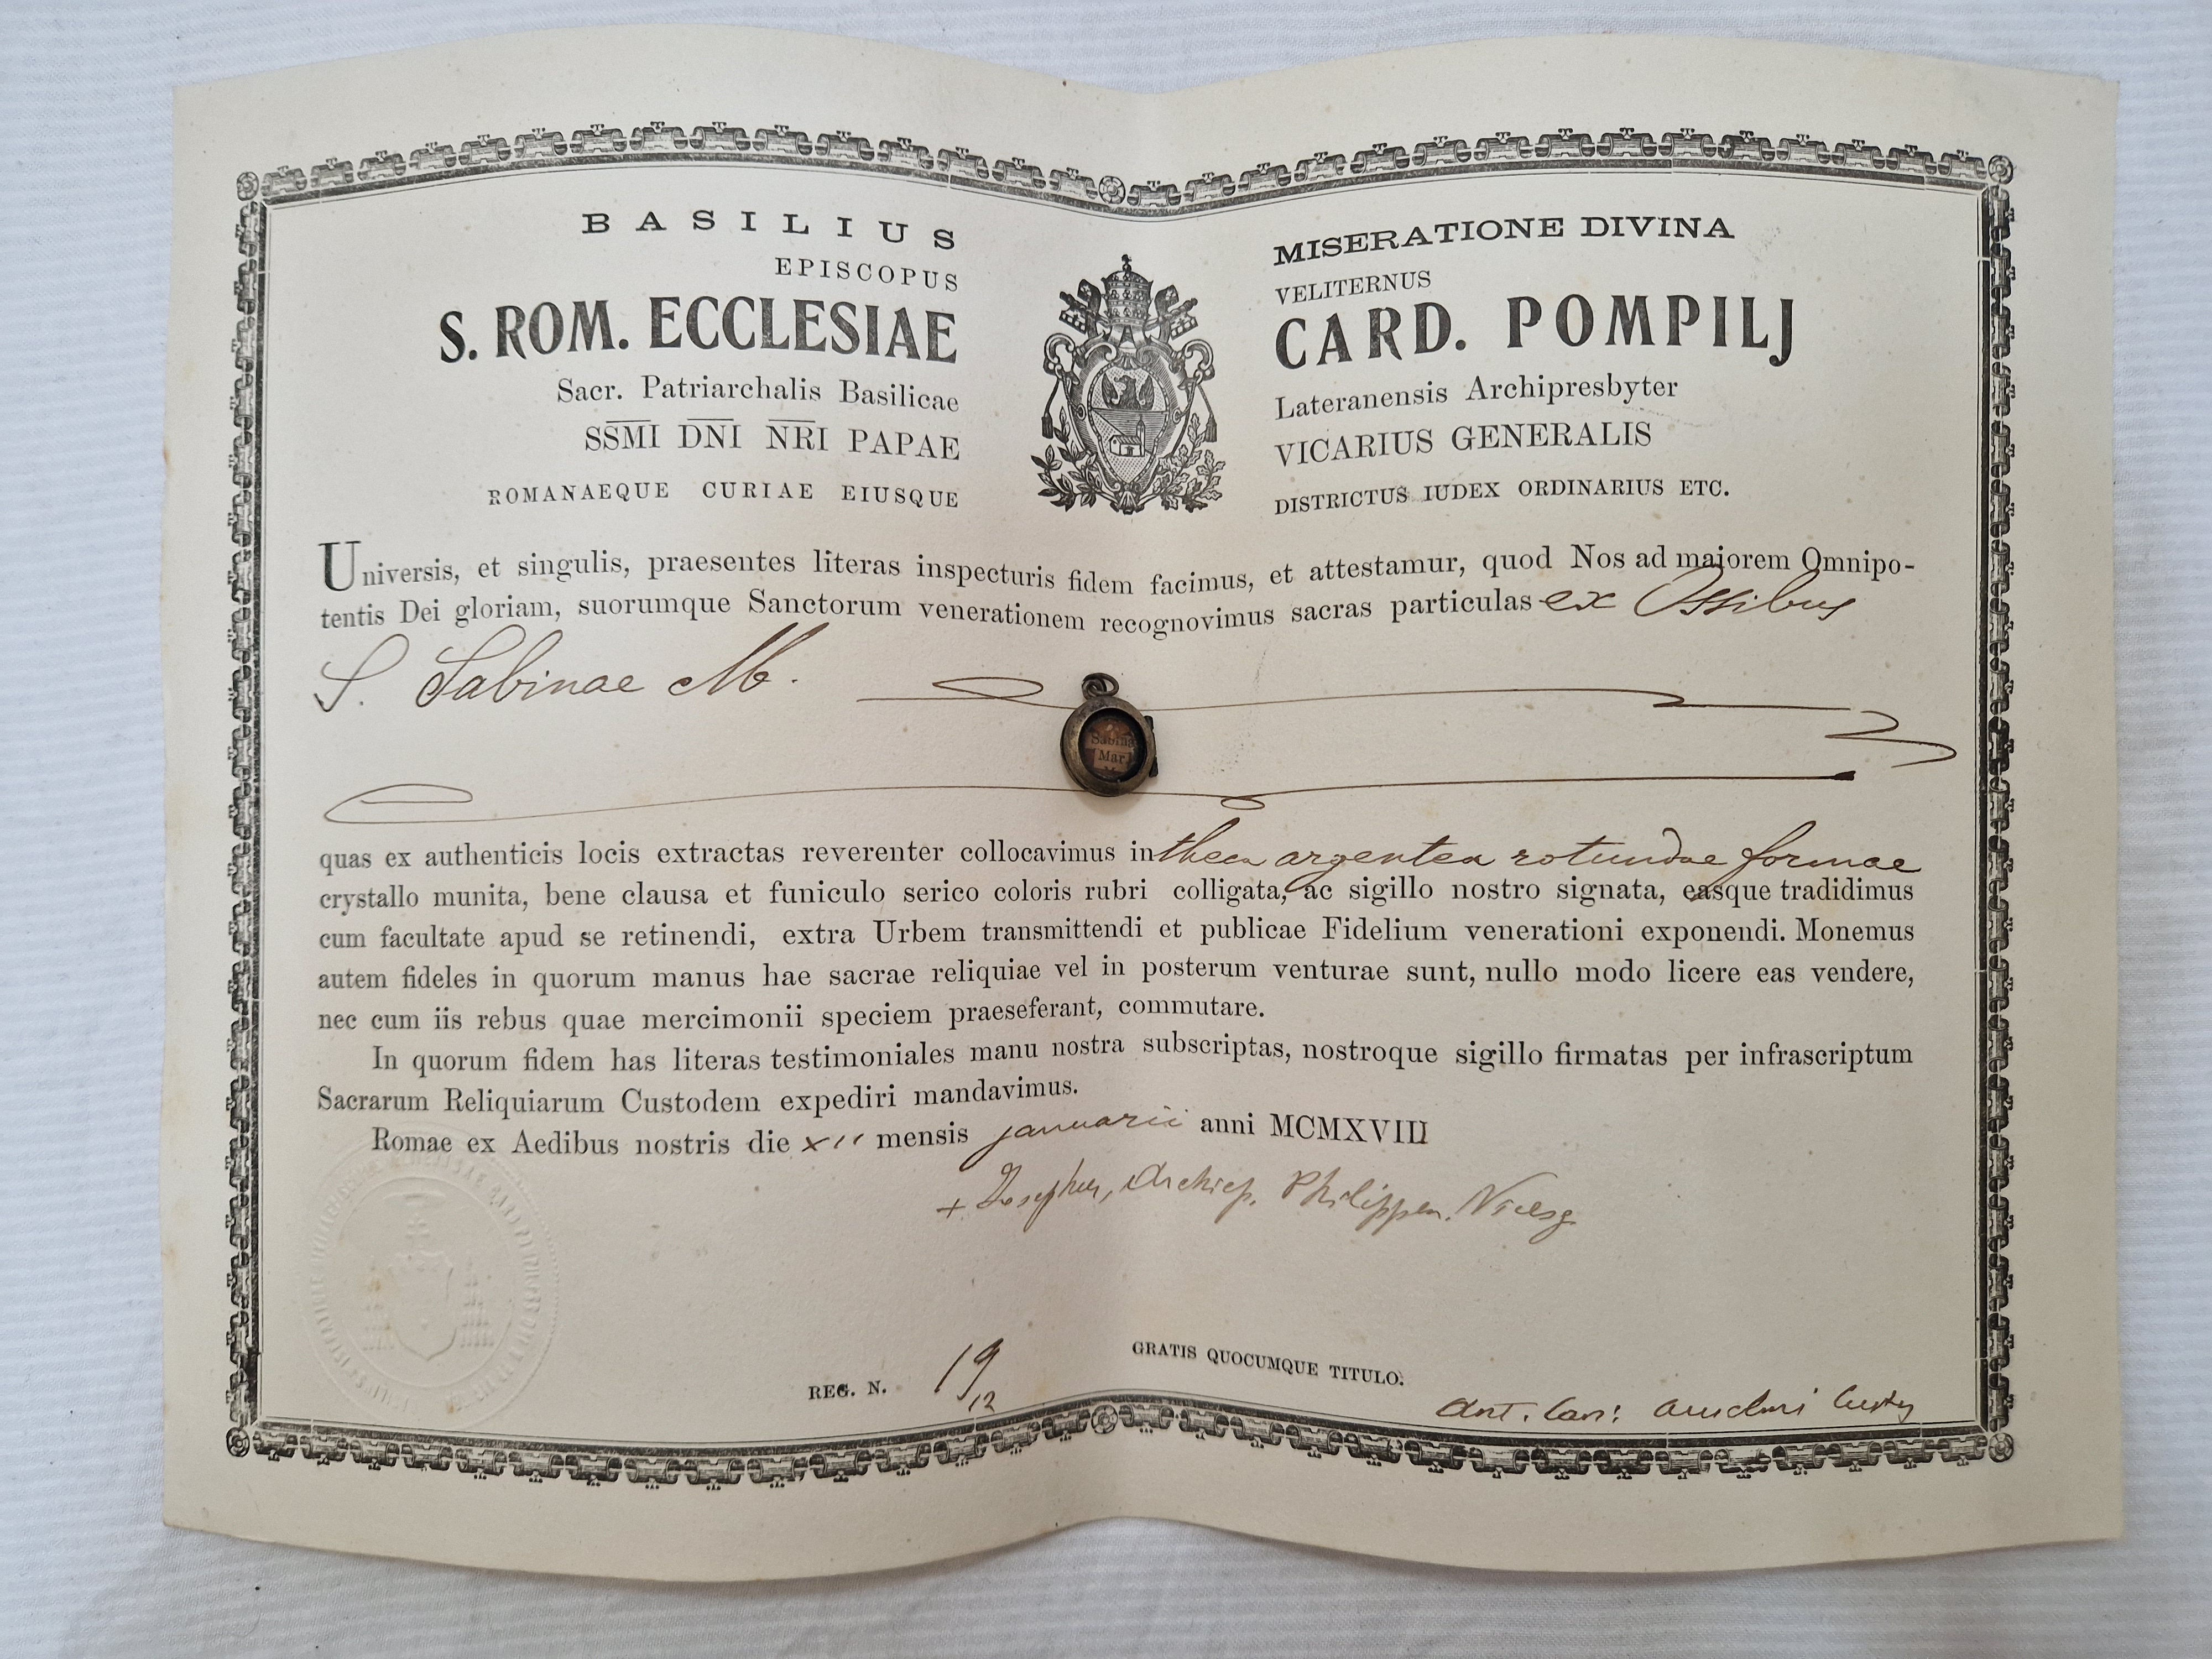 BASILIUS MISERATIONE DIVINA
EPISCOPUS VELITERNUS
S. ROM. ECCLESIAE CARD. POMPILJ
Sacr. Patriarchalis Basilicae Lateranensis Archipresbyter
SSMI DNI NRI PAPAE VICARIUS GENERALIS
ROMANAEQUE CURIAE EIUSQUE DISTRICTUS IUDEX ORDINARIUS ETC.
Universis, et singulis, praesentes literas inspecturis fidem facimus, et attestamur, quod Nos ad majorem Omnipo-
tentis Dei gloriam, suorumque Sanctorum venerationem recognovimus sacras particulas ex Ossibus
S. Sabinae M.
Sabina
Mar
quas ex authenticis locis extractas reverenter collocavimus in theca argentea rotundae formae
crystallo munita, bene clausa et funiculo serico coloris rubri colligata, ac sigillo nostro signata, easque tradidimus
cum facultate apud se retinendi, extra Urbem transmittendi et publicae Fidelium venerationi exponendi. Monemus
autem fideles in quorum manus hae sacrae reliquiae vel in posterum venturae sunt, nullo modo licere eas vendere,
nec cum iis rebus quae mercimonii speciem praeseferant, commutare.
In quorum fidem has literas testimoniales manu nostra subscriptas, nostroque sigillo firmatas per infrascriptum
Sacrarum Reliquiarum Custodem expediri mandavimus.
Romae ex Aedibus nostris die XII mensis januarii anni MCMXVIII
+ Josephus, Archiep. Philippen. Vicesg.
REG. N. 19/12 GRATIS QUOCUMQUE TITULO.
Ant. Can: Anselmi Custos